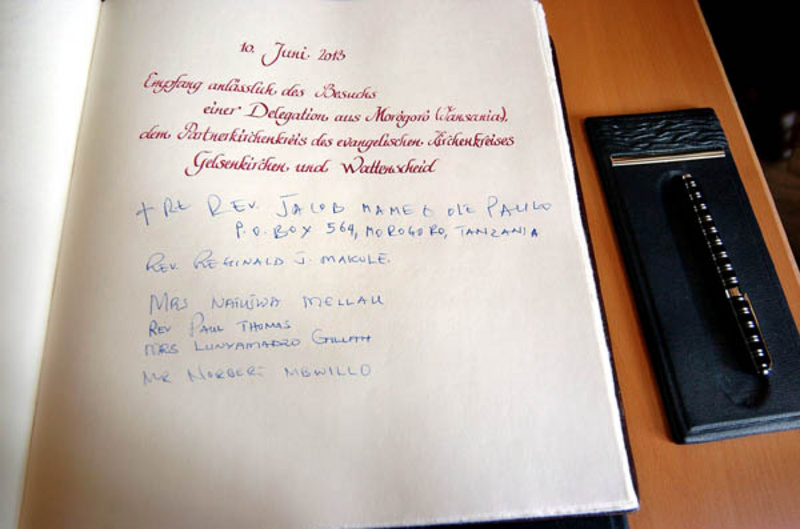 10. Juni. 2013
Empfang anlässlich des Besuchs
einer Delegation aus Morogoro (Tansania),
dem Partnerkirchenkreis des evangelischen Kirchenkreises
Gelsenkirchen und Wattenscheid
+ RE REV. JACOB MAMEO OLE PAULO
P.O. BOX 564, MOROGORO, TANZANIA
REV. REGINALD J. MAKULE.
MRS MELLAU
REV PAUL THOMAS
MRS
MR NORBERT MBWILLO